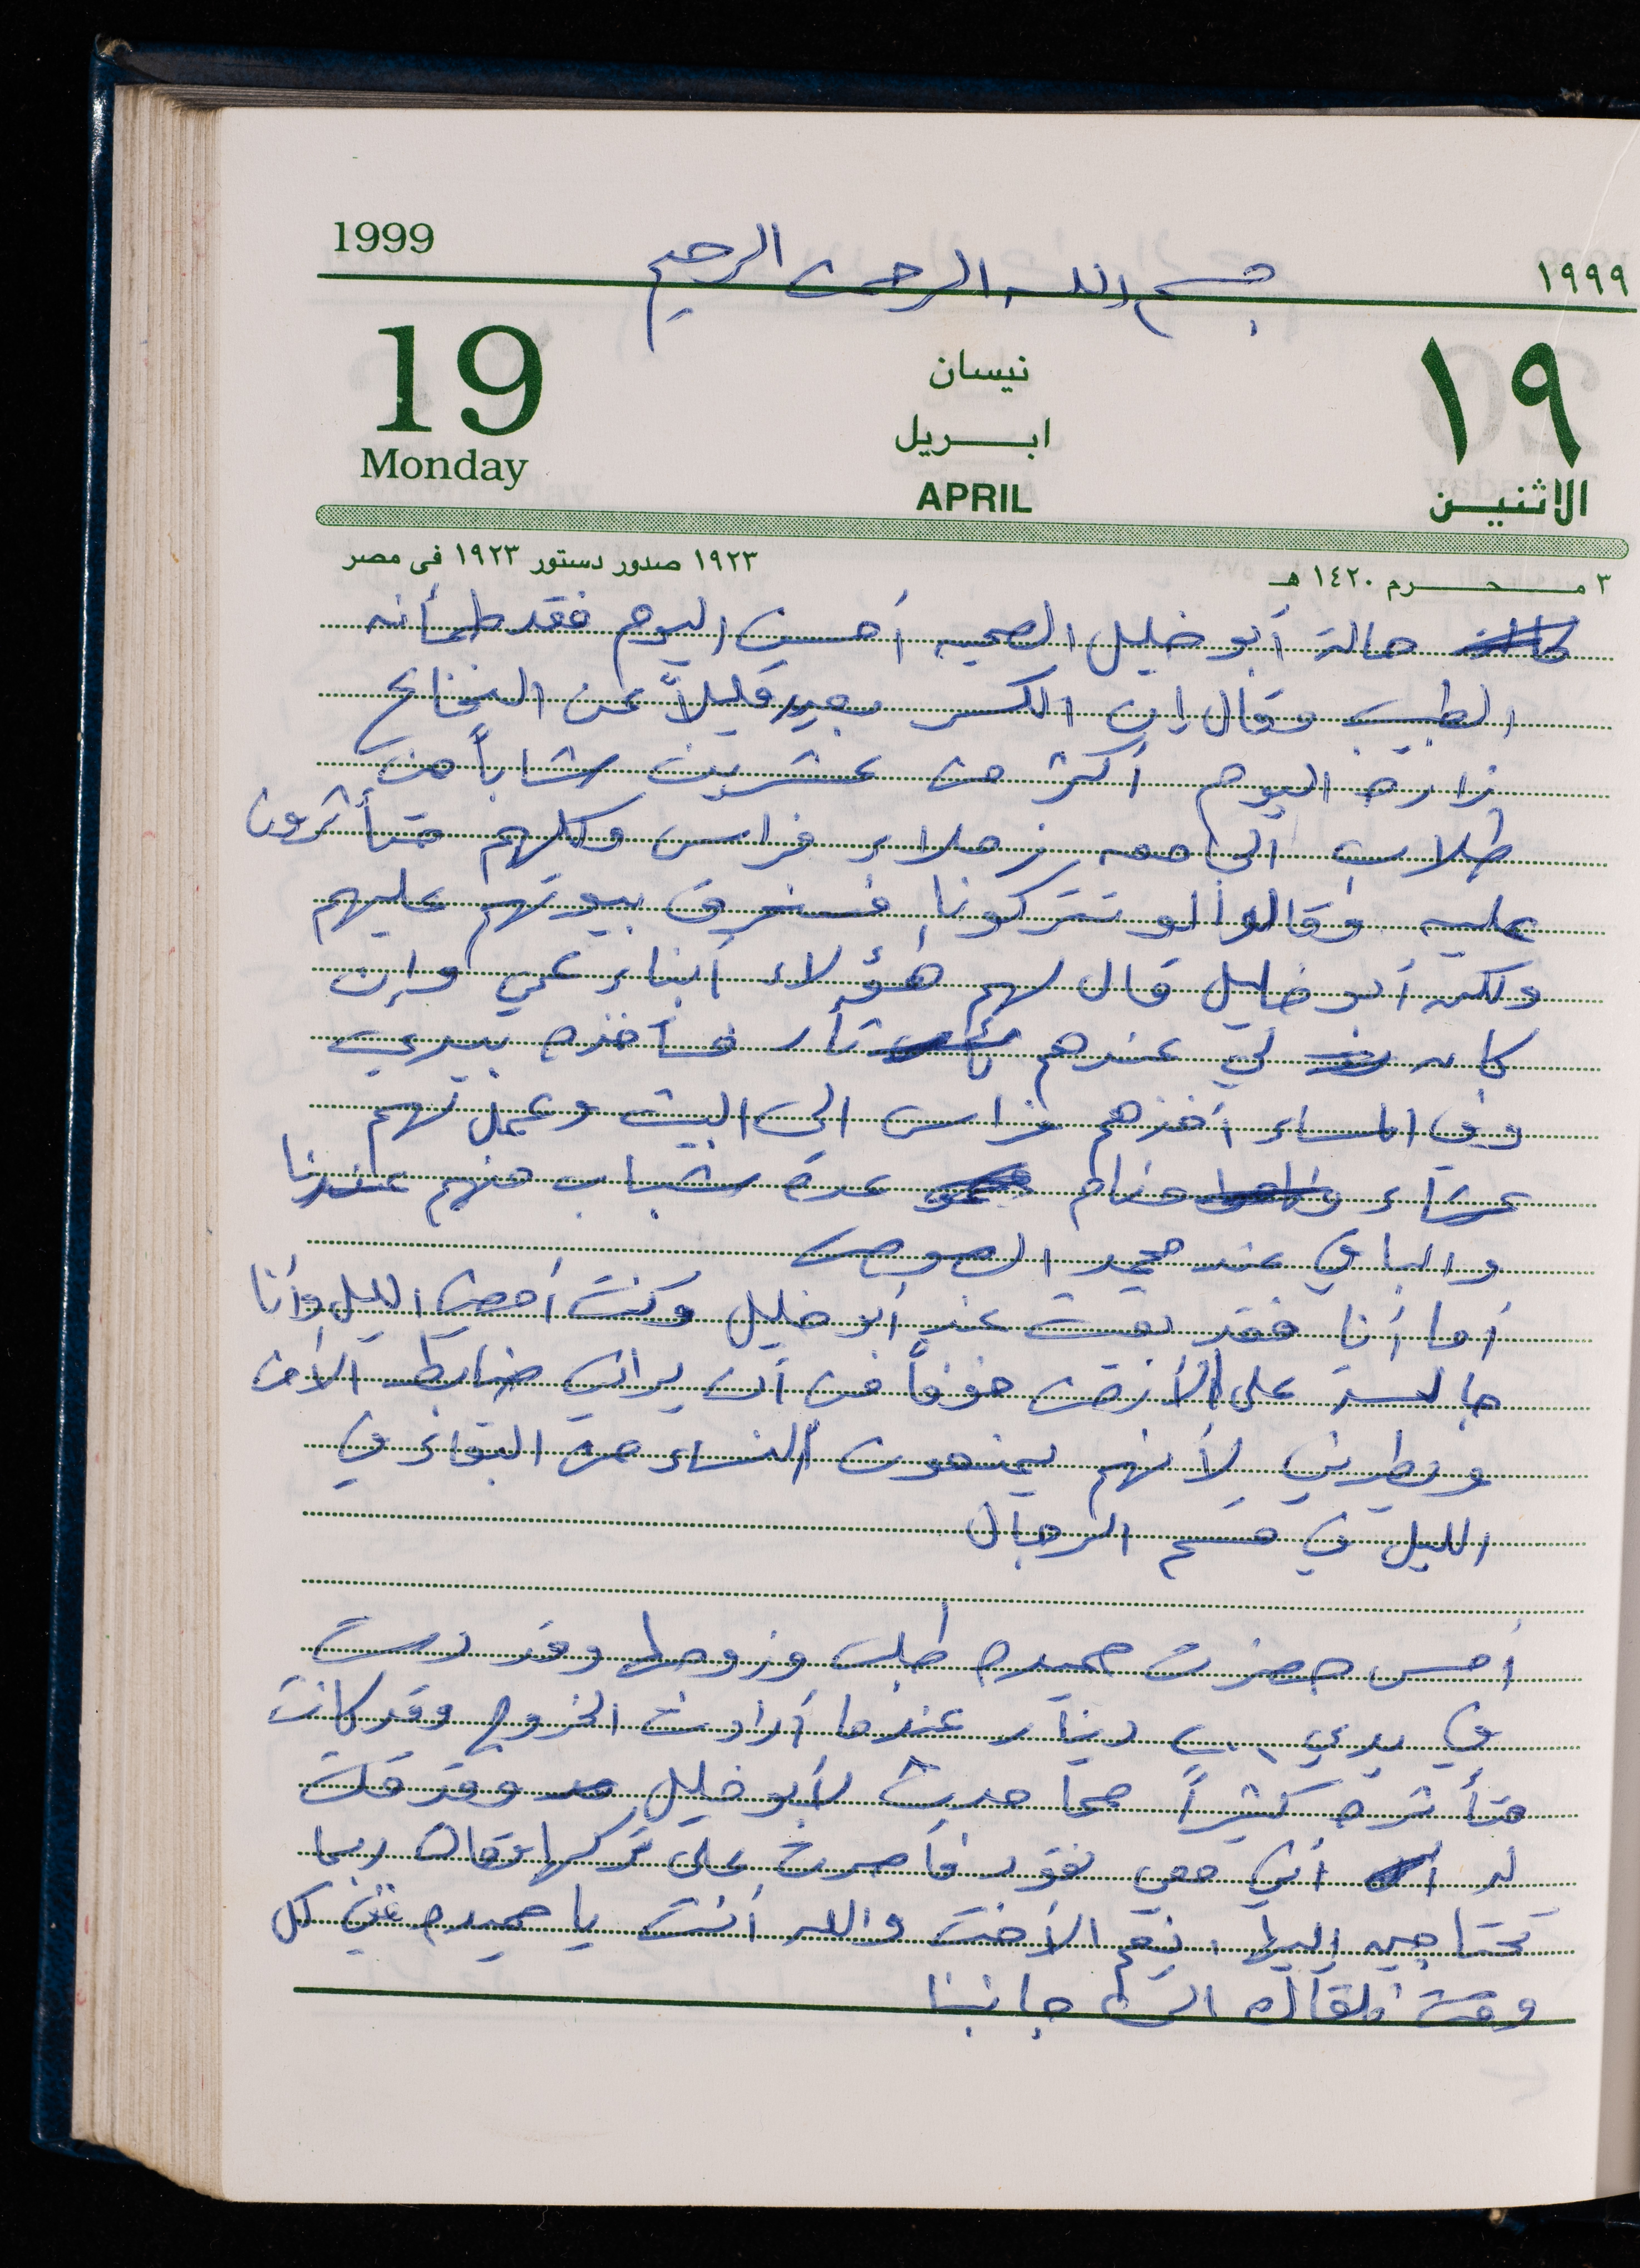 1999
١٩٩٩
بسم الله الرحمن الرحيم
19
Monday
نيسان
ابريل
APRIL
١٩
الاثنين
١٩٢٣ صدور دستور ١٩٢٣ فى مصر
٣ محرم ١٤٢٠ هـ
حالة أبو خليل الصحيه أحسن اليوم فقد طمأنه
الطبيب وقال إن الكسر بعيد قليلاً عن النخاع
زاره اليوم أكثر من عشرين شاباً من
طلاب الجامعه زملاء فراس وكلهم متأثرون
عليه وقالوا لو تتركونا فسنحرق بيوتهم عليهم
ولكن أبو خليل قال لهم هؤلاء أبناء عمي وإن
كان لي عندهم ثأر فسآخذه بيدي
وفي المساء أخذهم فراس الى البيت وعملت لهم
عشاء ونام عدة شباب منهم عندنا
والباقي عند محمد
أما أنا فقد بقيت عند أبو خليل وكنت أمضي الليل وأنا
جالسة على الأرض خوفاً من أن يراني ضابط الأمن
ويطردني لأنهم يمنعون النساء من البقاء في
الليل في قسم الرجال
أمس حضرت حميده طلب وزوجها وقد دست
في يدي دينار عندما أرادت الخروج وقد كانت
متأثره كثيراً مما حدث لأبو خليل وقد قلت
لها أني معي نقود فأصرت على تركها وقالت ربما
تحتاجين إليها. نعم الأخت والله أنت يا حميده في كل
وقت نلقاك الى جانبنا